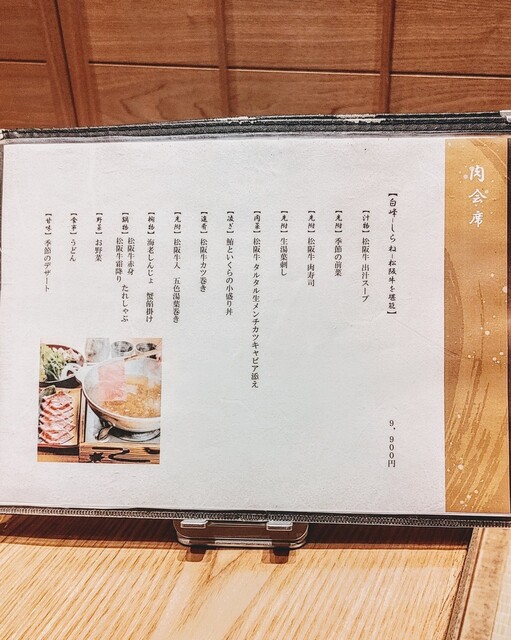 肉会席
【白峰−しらね−松阪牛を堪能】 9,900円
【汁物】 松阪牛 出汁スープ
【先附】 季節の前菜
【先附】 松阪牛 肉寿司
【先附】 生湯葉刺し
【肉菜】 松阪牛 タルタル生メンチカツキャビア添え
【凌ぎ】 鮪といくらの小盛り丼
【進肴】 松阪牛カツ巻き
【先附】 松阪牛入 五色湯葉巻き
【椀物】 海老しんじょ 蟹餡掛け
【鍋物】 松阪牛赤身
松阪牛霜降り たれしゃぶ
【野菜】 お野菜
【食事】 うどん
【甘味】 季節のデザート